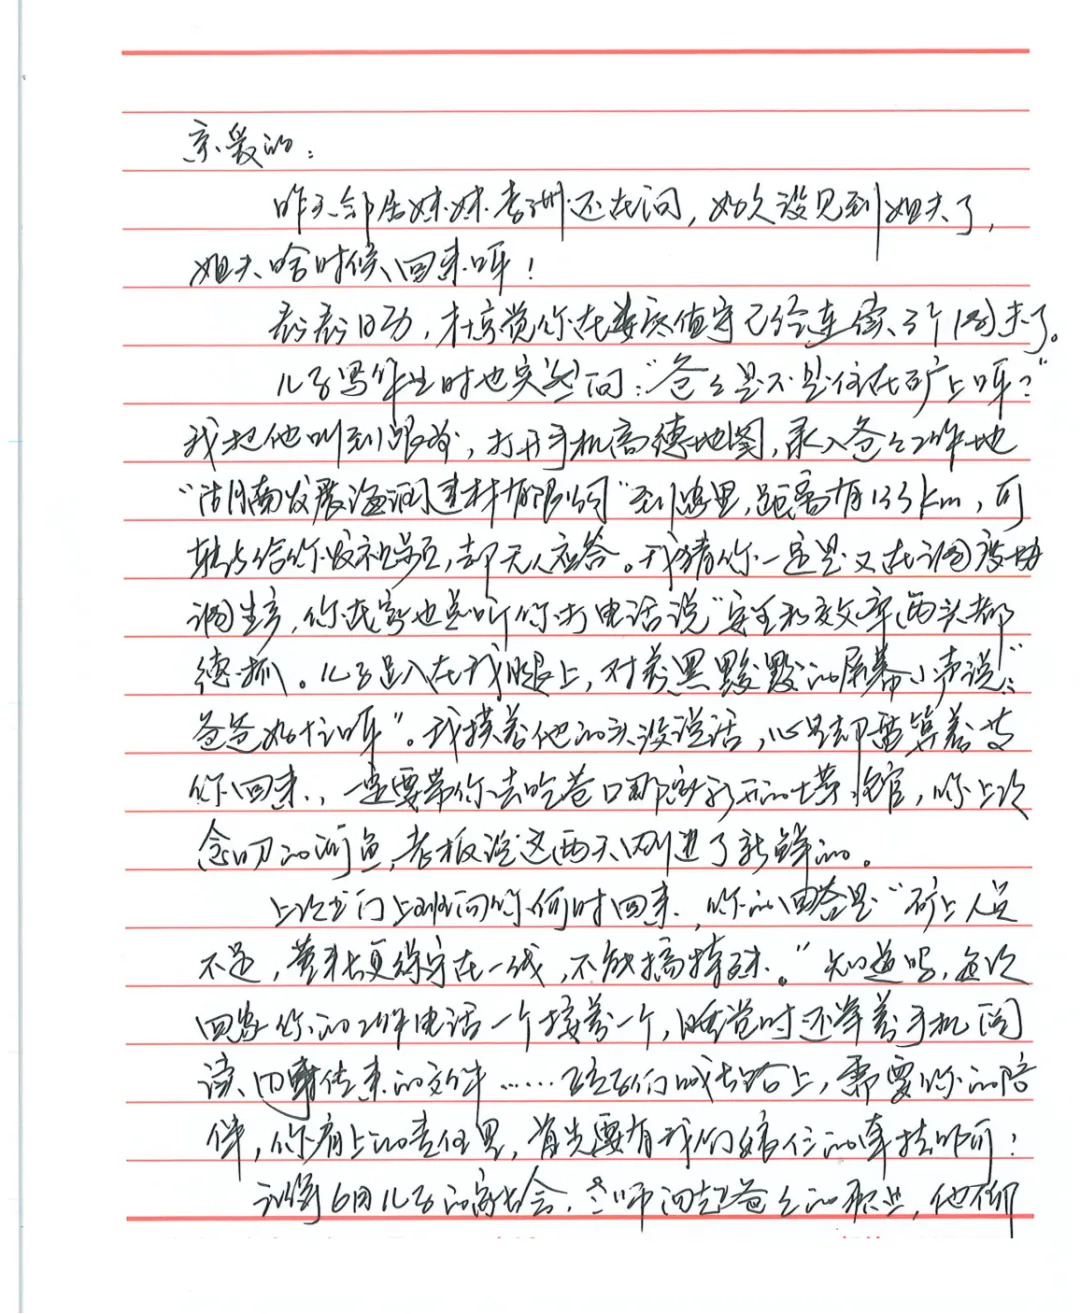 亲爱的：
昨天邻居妹妹李珊还在问，好久没见到姐夫了，
姐夫啥时候回来呀！
翻翻日历，才惊觉你在娄底值守已经连续3个周末了。
儿子写作业时也突然问：“爸爸是不是住在矿上呀？”
我把他叫到跟前，打开手机高德地图，录入爸爸工作地
“湖南发展海润建材有限公司”到这里，距离有133km，可
转身给你发视频，却无人应答。我猜你一定是又在调度协
调生产，你在家也总听你打电话说“安全和效率两头都
得抓。儿子趴在我腿上，对着黑黢黢的屏幕小声说：“
爸爸好忙呀”。我摸着他的头没说话，心里却盘算着等
你回来，一定要带你去吃巷口那家新开的土菜馆，你上次
念叨的河鱼，老板说这两天刚进了新鲜的。
上次出门上班问你何时回来，你的回答是“矿上人员
不足，董秘更得守在一线，不能搞特殊。”知道吗，每次
回家你的工作电话一个接着一个，睡觉时还举着手机阅
读、回复传来的文件……孩子们成长路上，需要你的陪
伴，你肩上的责任里，首先要有我们娘仨的牵挂啊！
记得6月儿子的家长会，老师问起爸爸的职业，他仰